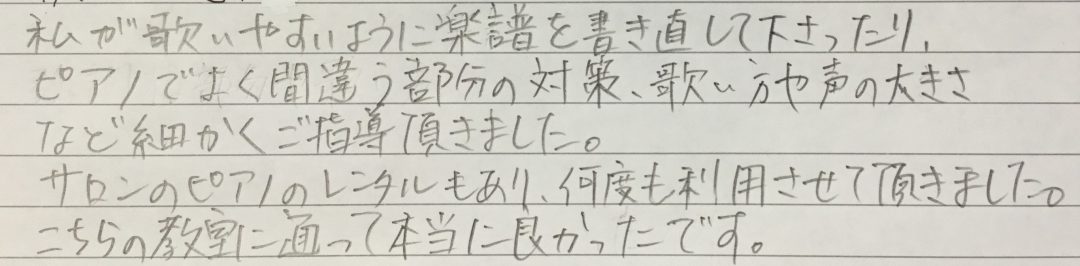 私が歌いやすいように楽譜を書き直して下さったり、
ピアノでよく間違う部分の対策、歌い方や声の大きさ
など細かくご指導頂きました。
サロンのピアノのレンタルもあり、何度も利用させて頂きました。
こちらの教室に通って本当に良かったです。